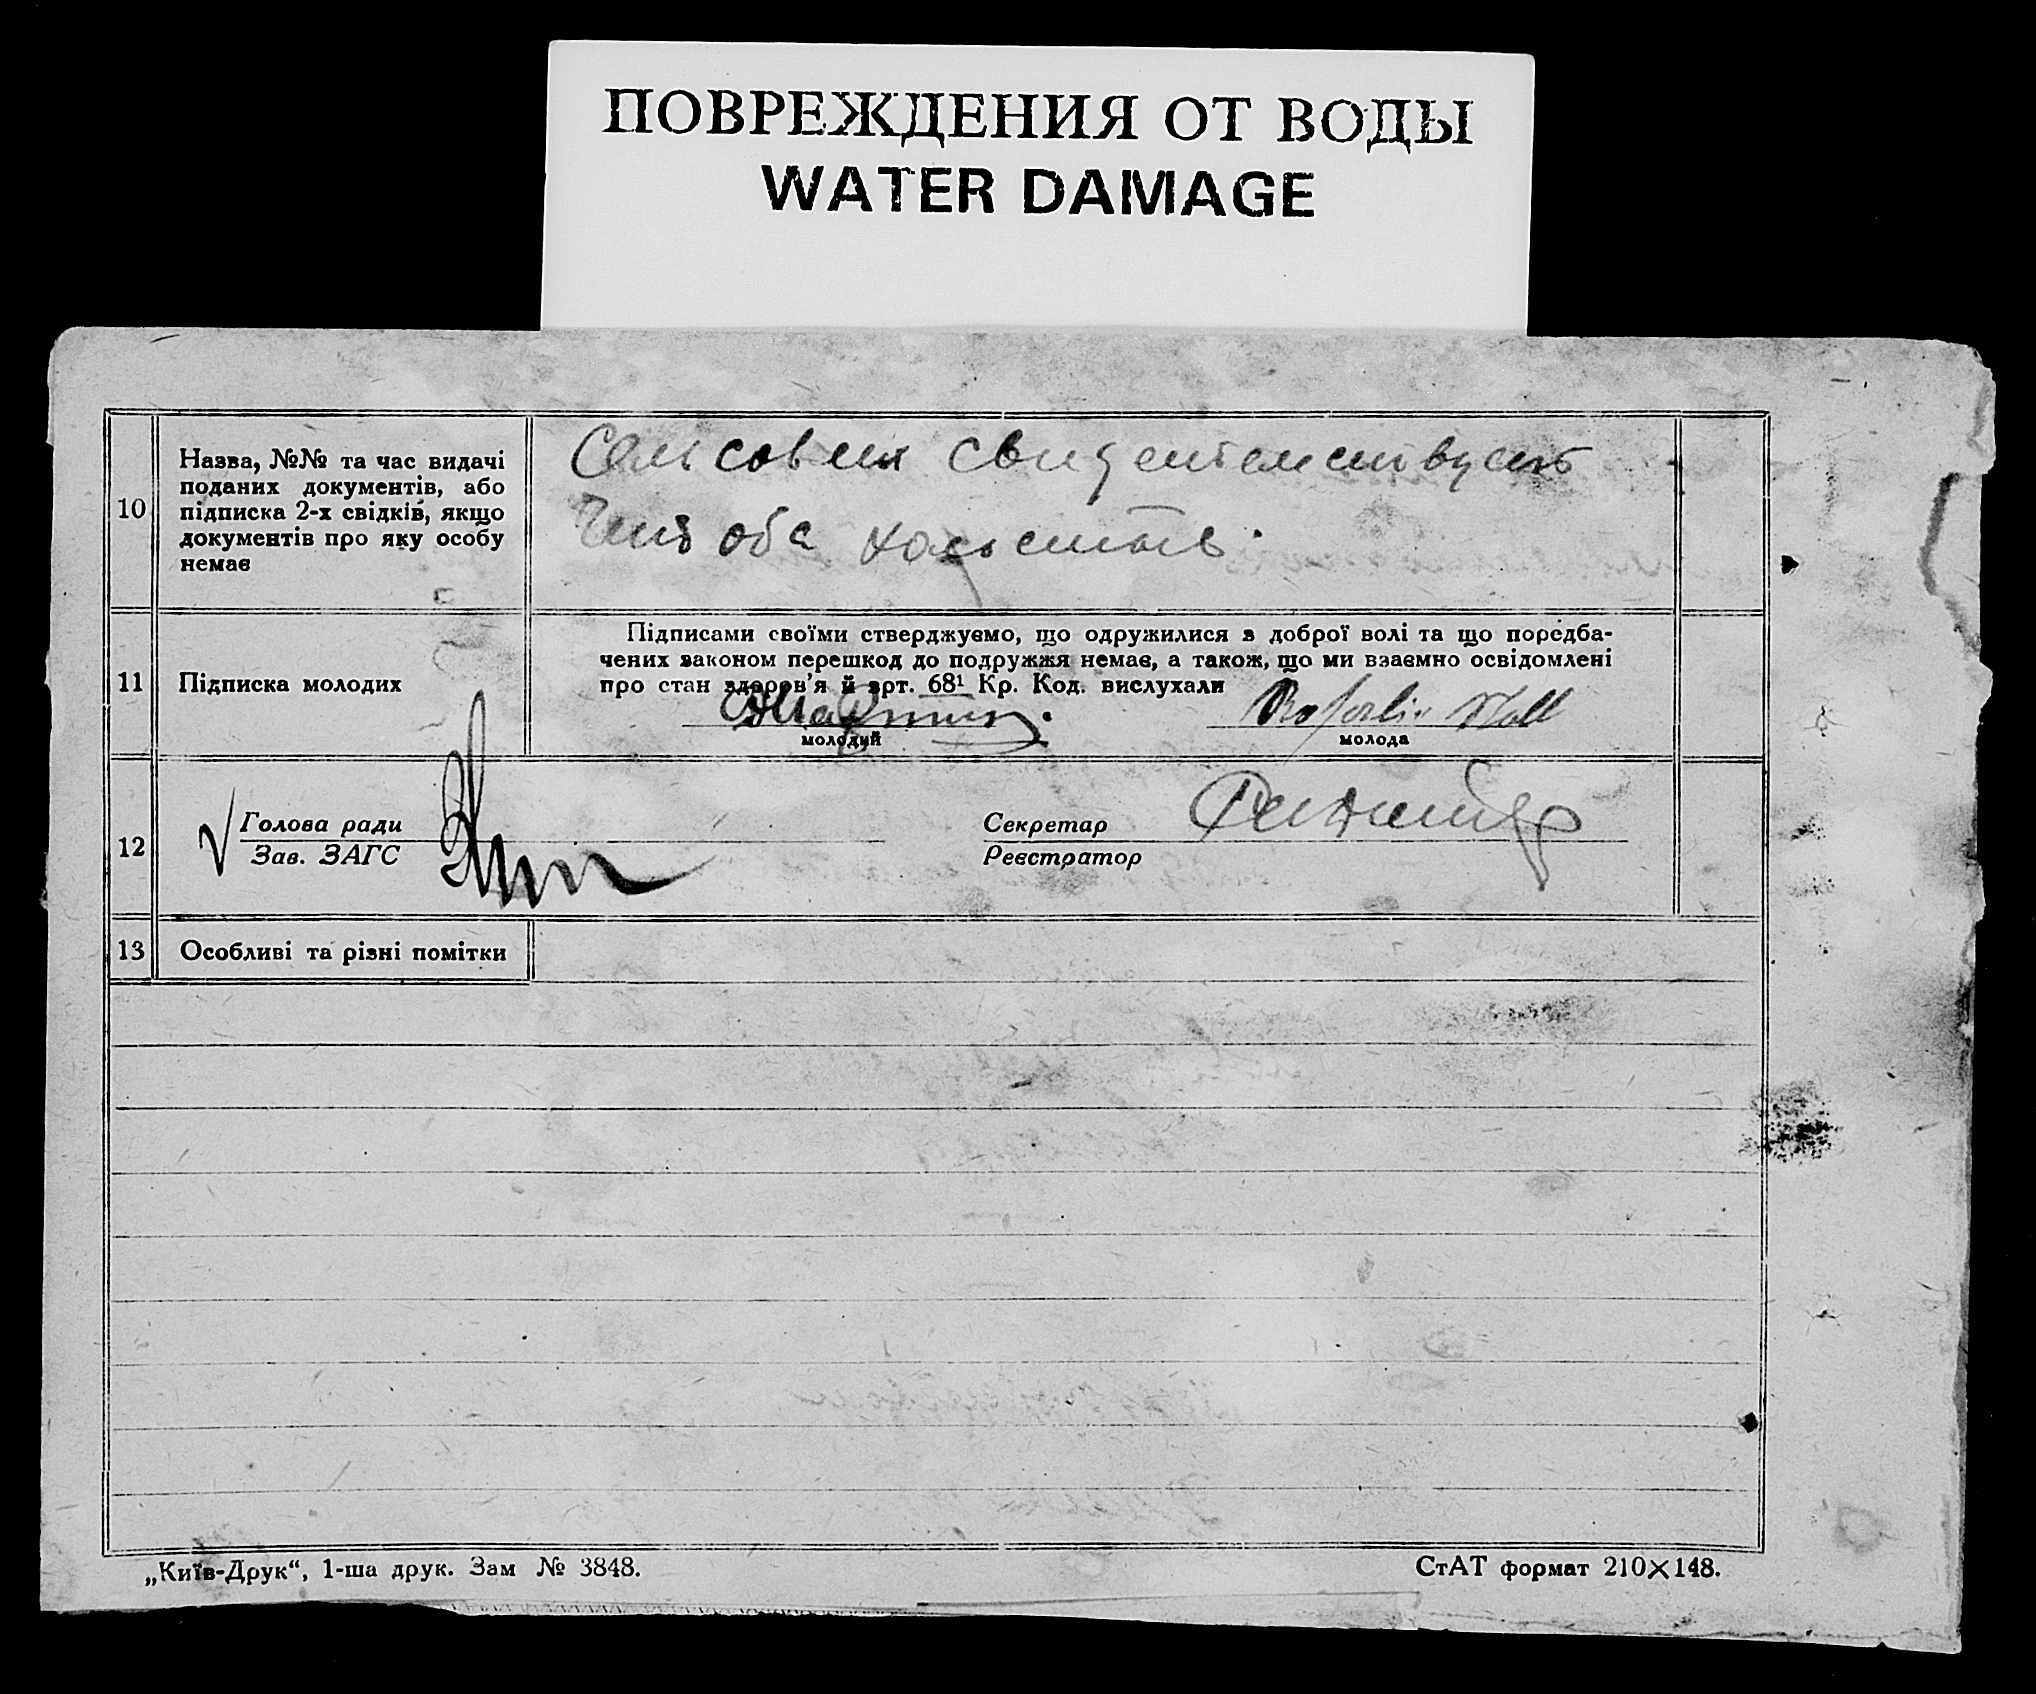 ПОВРЕЖДЕНИЯ ОТ ВОДЫ
WATER DAMAGE
10
Назва, №№ та час видачі
поданих документів, або
підписка 2-х свідків, якщо
документів про яку особу
немає
Сельсовет свидетельствует
что оба холостые.
11
Підписка молодих
Підписами своїми стверджуємо, що одружилися з доброї волі та що передба-
чених законом перешкод до подружжя немає, а також, що ми взаємно освідомлені
про стан здоров'я й арт. 68¹ Кр. Код. вислухали
молодий
молода
12
Голова ради
Зав. ЗАГС
Секретар
Реєстратор
13
Особливі та різні помітки
„Київ-Друк“, 1-ша друк. Зам № 3848.
СтАТ формат 210×148.